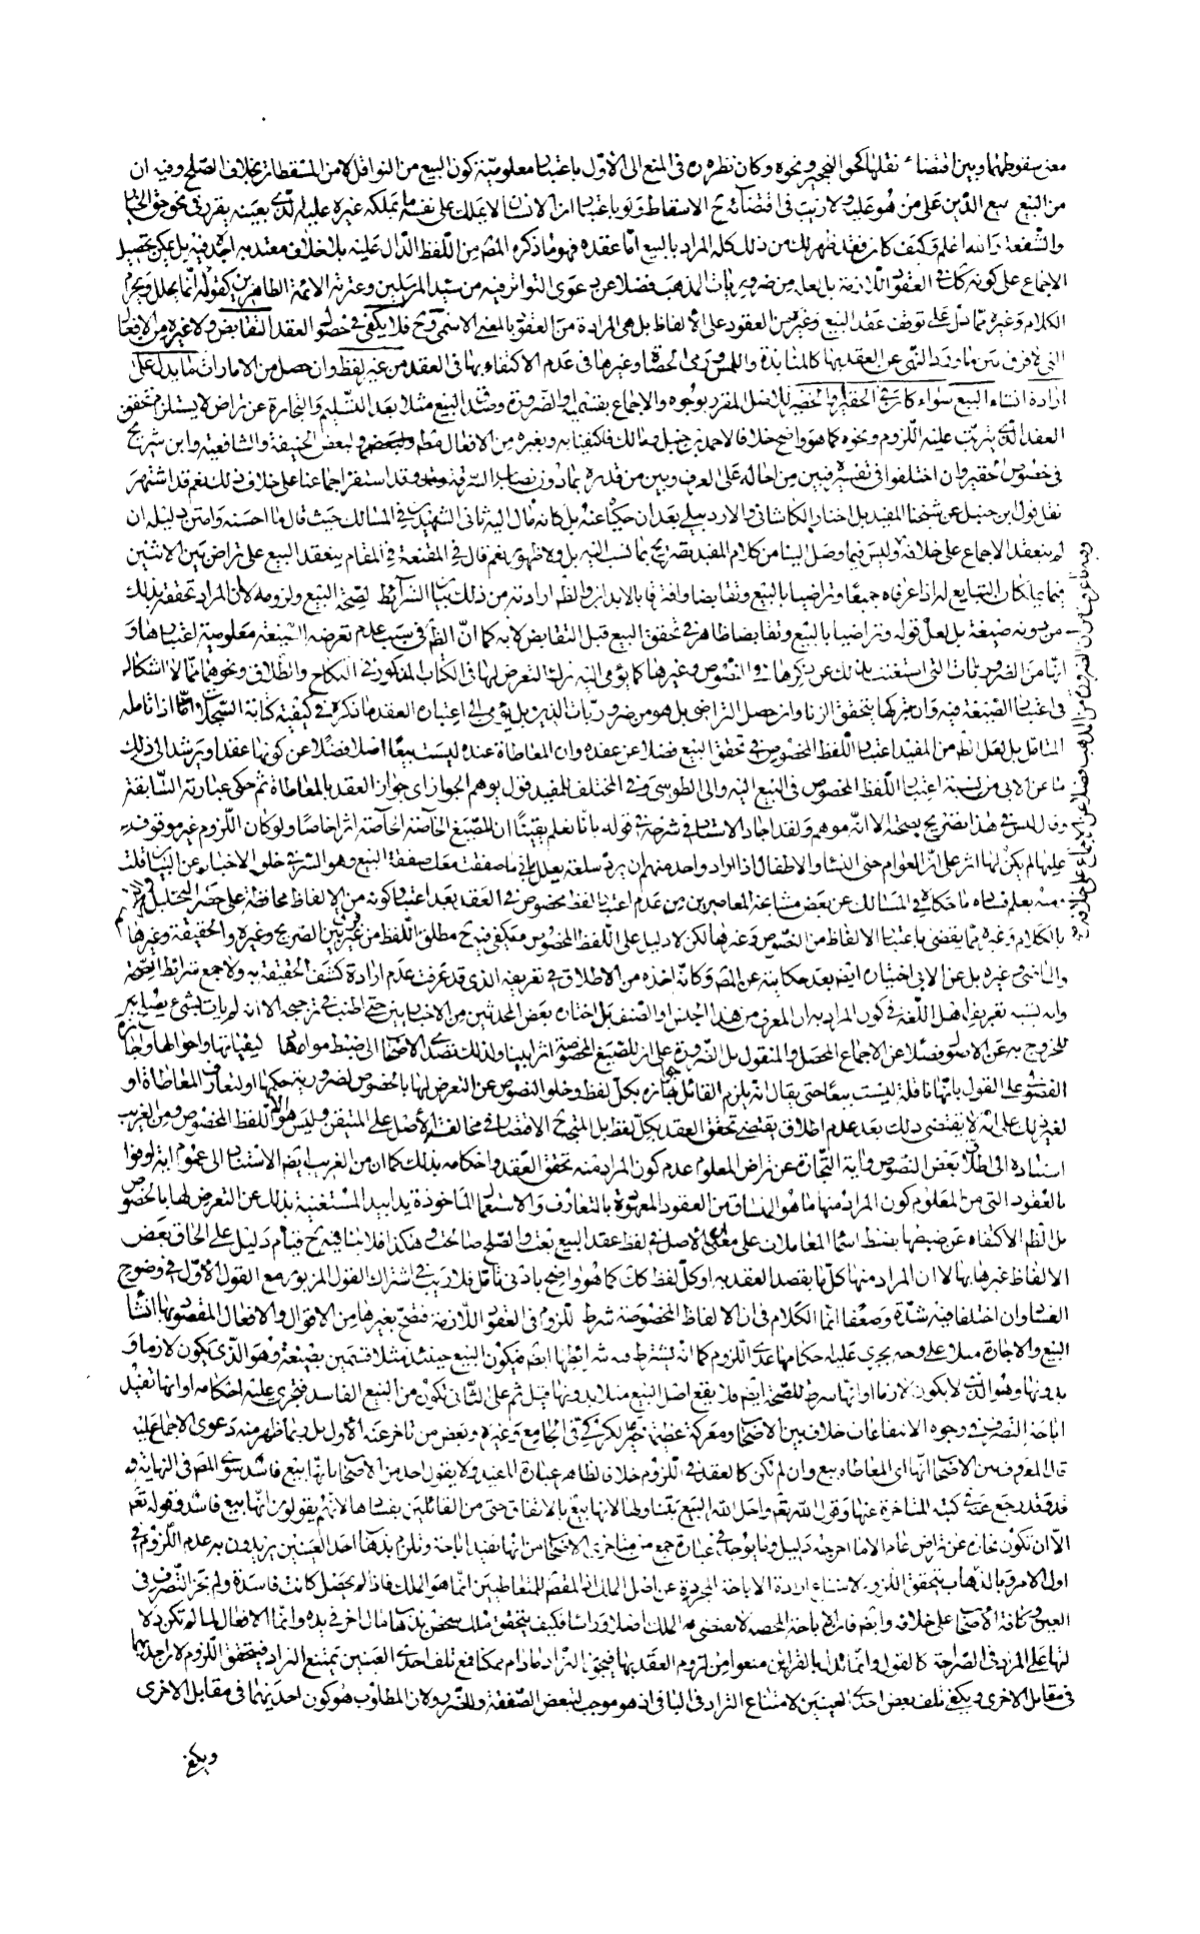 معنى سقوطها وبين اقتضاء نقلها كحق التحجير ونحوه وكان نظره ره في المنع الى الاول باعتبار معلومية كون البيع من النواقل لا من المسقطات بخلاف الصلح وفيه ان
من البيع بيع الدين على من هو عليه ولا ريب في اقتضائه ح الاسقاط ولو باعتبار ان الانسان لا يملك على نفسه ما يملكه غيره عليه الذي بعينه يقرر في نحو حق الخيار
والشفعة والله اعلم وكيف كان فقد ظهر لك من ذلك كله المراد بالبيع اما عقده فهو ما ذكره المص من اللفظ الدال عليه بلا خلاف معتد به اجده فيه بل يمكن تحصيل
الاجماع على كونه كك في العقود اللازمة بل لعله من ضروريات المذهب فضلا عن دعوى التواتر فيه من سيد المرسلين وعترته الائمة الطاهرين كقوله انما يحلل ويحرم
الكلام وغيره مما دل على توقف عقد البيع وغيره من العقود على الالفاظ بل هي المرادة من العقود بالمعنى الاسمي وح فلا يكفي في حصول العقد التقابض ولا غيره من الافعال
التي لا فرق بين ما ورد النهي عن العقد بها كالمنابذة والملمس ورمي الحصاة وغيرها في عدم الاكتفاء بها في العقد من غير لفظ وان حصل من الامارات ما يدل على
ارادة انشاء البيع سواء كان في الحقير او الخطير للاصل المقرر بوجوه والاجماع بقسميه والضرورة وصدق البيع مثلا بعد التسليم والتجارة عن تراض لا يستلزم تحقق
العقد الذي يترتب عليه اللزوم ونحوه كما هو واضح خلافا لاحمد بن حنبل ومالك فاكتفيا به وبغيره من الافعال فقط ولبعض الحنيفة والشافعية وابن شريح
في خصوص الحقير وان اختلفوا في تفسيره فبين من احاله على العرف وبين من قدره بما دون نصاب السرقة وقد استقر اجماعنا على خلاف ذلك نعم قد اشتهر
نقل قول بن حنبل عن شيخنا المفيد بل اختاره الكاشاني والاردبيلي بعد ان حكياه عنه بل كانه مال اليه ثاني الشهيدين في المسالك حيث قال ما احسنه وامتن دليله ان
لم ينعقد الاجماع على خلافه وليس فيما وصل الينا من كلام المفيد تصريح بما نسب اليه بل ولا ظهور نعم قال في المقنعة في المقام ينعقد البيع على تراض بين الاثنين
فيما يملكان التبايع له اذا عرفاه جميعا وتراضيا بالبيع وتقابضا وافترقا بالابدان والظ ارادته من ذلك بيان الشرائط لصحة البيع ولزومه لا ان المراد تحققه بذلك
من دون صيغة بل لعل قوله وتراضيا بالبيع وتقابضا ظاهر في تحقق البيع قبل التقابض لا به كما ان الظ في سبب عدم تعرضه للصيغة معلومية اعتبارها و
انها من الضروريات التي استغنت بذلك عن ذكرها في النصوص وغيرها كما يومي اليه ترك التعرض لها في الكتاب المذكور في النكاح والطلاق ونحوهما مما لا اشكال
في اعتبار الصيغة فيه وان تركها يتحقق الزنا وان حصل التراضي بل هو من ضروريات الدين بل يومي الى اعتباره العقد ما ذكره في كيفية كتابة السجلات اذا تامله
المتامل بل لعل الظ من المفيد اعتبار اللفظ المخصوص في تحقق البيع فضلا عن عقده وان المعاطاة عنده ليست بيعا اصلا فضلا عن كونها عقدا ويرشد الى ذلك
ما عن الابي من نسبة اعتبار اللفظ المخصوص في البيع اليه والى الطوسي وفي المختلف للمفيد قول يوهم الجواز اي جواز العقد بالمعاطاة ثم حكى عبارته السابقة
وقال ليس في هذا تصريح بصحته الا انه موهم ولقد اجاد الاستاد في شرحه في قوله بانا نعلم يقينا ان للصيغ الخاصة الخاصة اثرا خاصا ولو كان اللزوم غير موقوف
عليها لم يكن لها اثر على انه العوام حتى النساء والاطفال اذا اراد واحد منهم ان يرد سلعة يعلل باني ما صفقت معك صفقة البيع وهو السر في خلو الاخبار عن البيان قلت
ومنه يعلم فساد ما حكاه في المسالك عن بعض مشايخه المعاصرين من عدم اعتبار لفظ مخصوص في العقد بعد اعتبار كونه من الالفاظ محافظة على حصر التحليل والتحريم
بالكلام وغيره مما يقضي باعتبار الالفاظ من النصوص وغيرها لكن لا دليل على اللفظ المخصوص فيكفي فيه ح مطلق اللفظ من غير فرق بين الصريح وغيره والحقيقة وغيرها
وان انثنى غيره بل عن الابي اختياره ايضم بعد حكايته عن المص وكانه اخذه من الاطلاق في تعريفه الذي قد عرفت عدم ارادة كشف الحقيقة به ولا جمع شرائط الصحة
وانه يشبه تعريف اهل اللغة في كون المراد بيان المعرف من هذا الجنس او الصنف بل اختاره بعض المحدثين من الاخباريين حتى اطنب في ترجيحه الا انه لم يات بشيء يصلح
للخروج به عن الاصول فضلا عن الاجماع المحصل والمنقول بل الضرورة على ان للصيغ المخصوصة اثرا بينا ولذلك تصدى الاصحاب الى ضبط موادها وكيفياتها واحوالها واجازة
الفضولي على القول بانها ناقلة ليست بيعا حتى يقال انه يلزم القائل بها جوازه بكل لفظ وخلو النصوص عن التعرض لها بالخصوص لضرورية حكمها او لتعارف المعاطاة او
لغير ذلك على انه لا يقتضي ذلك بعد عدم اطلاق يقتضي تحقق العقد بكل لفظ بل المتجه ح الاقتصار في مخالفة الاصل على المتيقن وليس هو الا اللفظ المخصوص ومن الغريب
استناده الى اطلاق بعض النصوص واية التجارة عن تراض المعلوم عدم كون المراد منه تحقق العقد واحكامه بذلك كما ان من الغريب ايضم الاستناد الى عموم اية اوفوا
بالعقود التي من المعلوم كون المراد منها ما هو المنساق من العقود المعهودة بالتعارف والاستعمال الماخوذة يدا بيد المستغنية بذلك عن التعرض لها بالخصوص
بل الظم الاكتفاء عن ضبطها بضبط اسماء المعاملات على معنى ان الاصل في لفظ عقد البيع بعت والصلح صالحت وهكذا فلا ينافيه ح قيام دليل على الحاق بعض
الالفاظ غيرها بها لا ان المراد منها كل ما يقصد العقد به او كل لفظ كك كما هو واضح بادنى تامل فلا ريب في اشتراك القول المزبور مع القول الاول في وضوح
الفساد وان اختلفا فيه شدة وضعفا انما الكلام في ان الالفاظ المخصوصة شرط للزوم في العقود اللازمة فتصح بغيرها من الاقوال والافعال المقصود بها انشاء
البيع والاجارة مثلا على وجه يجري عليه حكامها عدى اللزوم كما انه يشترط فيه شرائطها ايضم فيكون البيع حينئذ مثلا قسمين بصيغة وهو الذي يكون لازما و
بدونها وهو الذي لا يكون لازما او انها شرط للصحة ايضم فلا يقع اصل البيع مثلا بدونها قيل ثم على الثاني يكون من البيع الفاسد فتجري عليه احكامه او انها تفيد
اباحة التصرف في وجوه الانتفاعات خلاف بين الاصحاب ومعركة عظيمة خيرة الكركي في الجامع وغيره وبعض من تاخر عنه الاول بل ربما ظهر منه دعوى الاجماع عليه
قال المعروف بين الاصحاب انها اي المعاطاة بيع وان لم تكن كالعقد في اللزوم خلاف لظاهر عبارة المفيد ولا يقول احد من الاصحاب بانها بيع فاسد سوى المص في النهاية و
قد رجع عنه في كتبه المتاخرة عنها وقول الله تعم واحل الله البيع يتناولها لانها بيع بالاتفاق حتى من القائلين بفسادها لانهم يقولون انها بيع فاسد وقوله تعم
الا ان تكون تجارة عن تراض عام الا ما اخرجه دليل وما يوجد في عبارة جمع من متاخري الاصحاب من انها تفيد اباحة وتلزم بذهاب احد العينين يريدون به عدم اللزوم في
اول الامر وبالذهاب يتحقق اللزوم لامتناع ارادة الاباحة المجردة عن اصل الملك اذ المقصم للمتعاطيين انما هو الملك فاذا لم يحصل كانت فاسدة ولم يجز التصرف في
العين وكافة الاصحاب على خلافه وايضم فان الاباحة المحضة لا تقتضي الملك اصلا وراسا فكيف يتحقق ملك شخص بذهاب مال اخر في يده وانما الافعال لما لم تكن دلا
لتها على المراد في الصراحة كالقول وانما تدل بالقرائن منعوا من لزوم العقد بها فيجوز التراد ما دام ممكنا فمع تلف احدى العينين يمتنع التراد فيتحقق اللزوم لان احديهما
في مقابل الاخرى ويكفي تلف بعض احدى العينين لامتناع التراد في الباقي اذ هو موجب لتبعض الصفقة والضرر ولان المطلوب هو كون احديهما في مقابل الاخرى
ويكفي